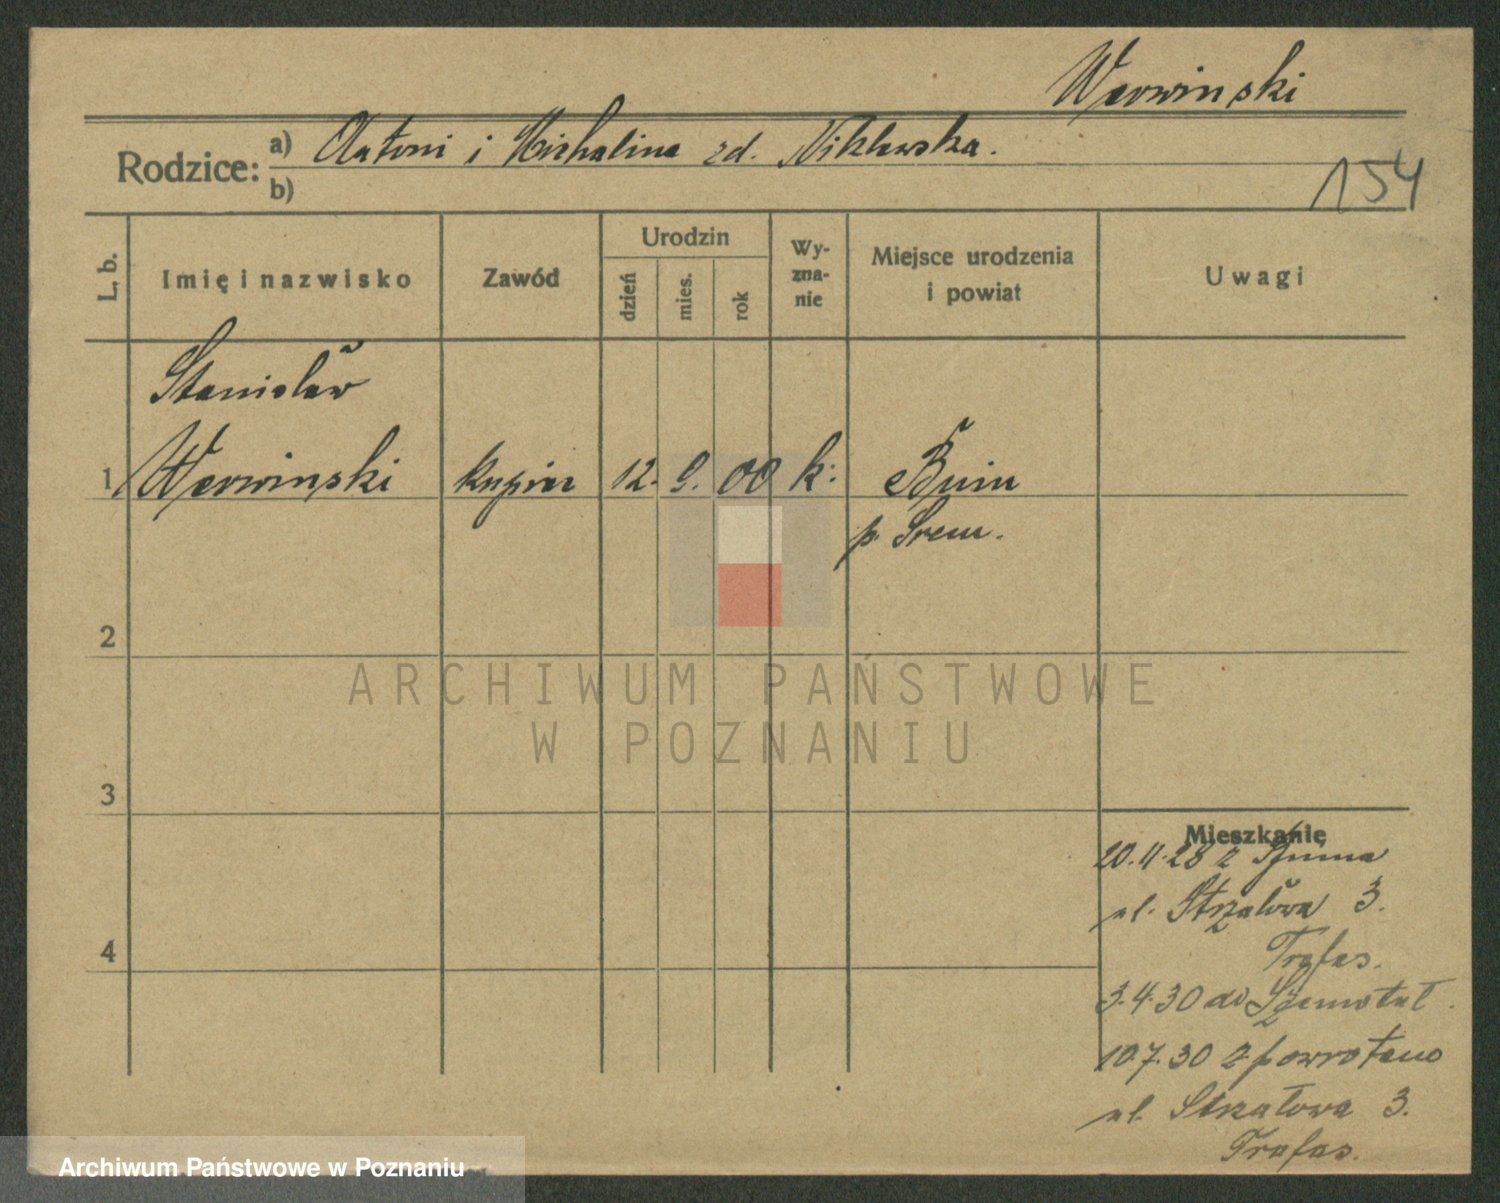 Werwinski
Rodzice: a) Antoni i Michalina zd. Niklewska.
b)
154
L. b.
Imię i nazwisko
Zawód
Urodzin
dzień
mies.
rok
Wy-
zna-
nie
Miejsce urodzenia
i powiat
Uwagi
Stanisław
1 Werwinski kupiec 12. 9. 00 k: Bnin
p. Srem.
2
3
4
Mieszkanie
20.11.28 z
ul. Strzałowa 3.
Trafas.
3.4.30 do Szamotuł.
10.7.30 z powrotem
ul. Strzałowa 3.
Trafas.
ARCHIWUM PAŃSTWOWE
W POZNANIU
Archiwum Państwowe w Poznaniu